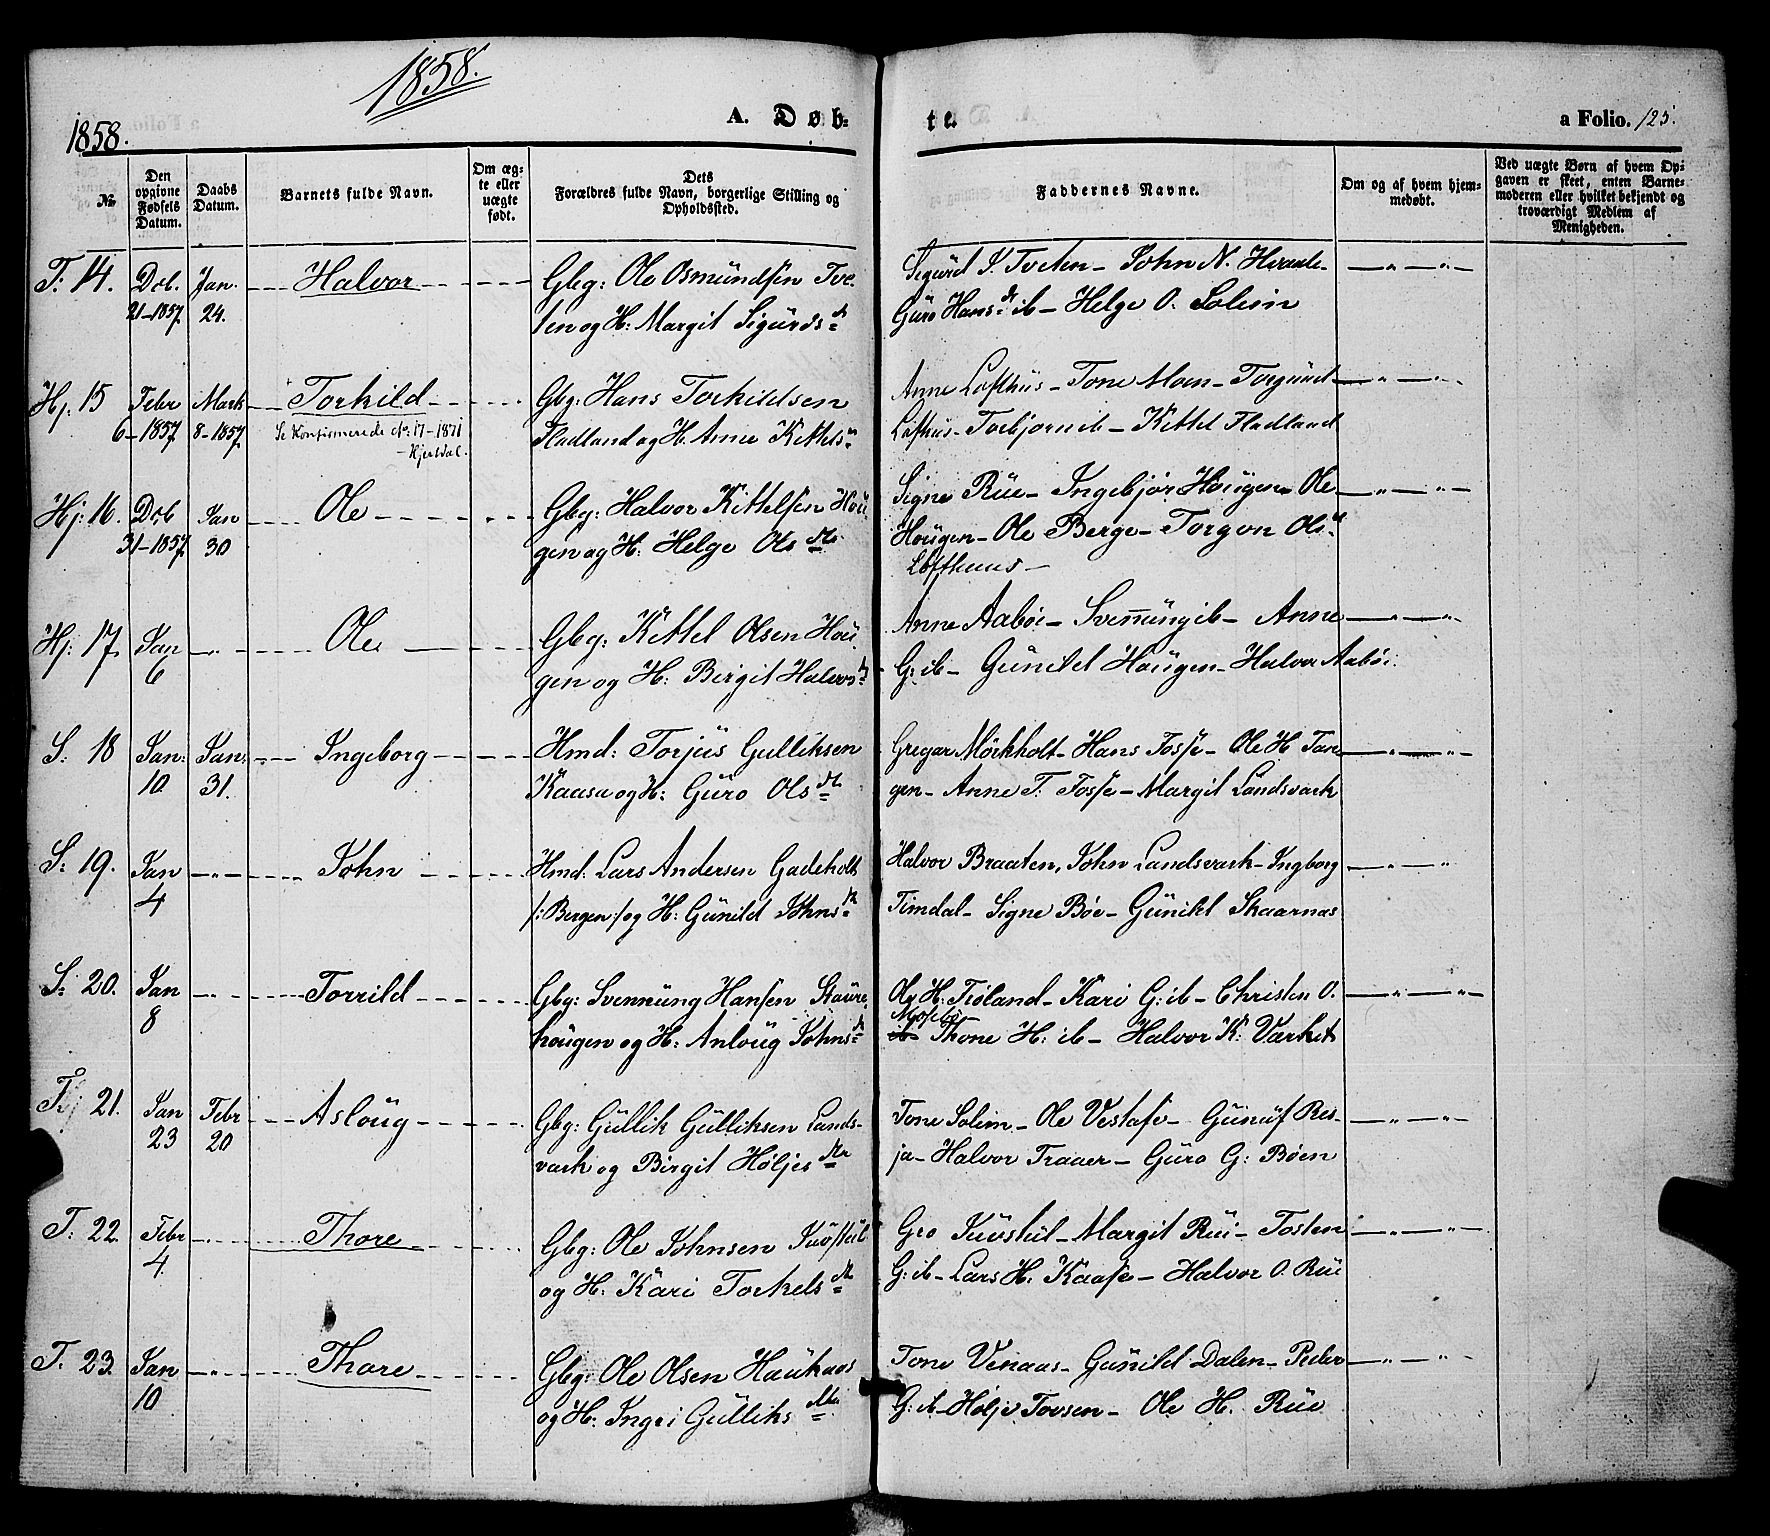 1858.
1858.
A. Døb-
te.
a Folio. 125.
No
Den opgivne Fødsels Datum.
Daabs Datum.
Barnets fulde Navn.
Om ægte eller uægte født.
Dets Forældres fulde Navn, borgerlige Stilling og Opholdssted.
Faddernes Navne.
Om og af hvem hjemmedøbt.
Ved uægte Børn af hvem Opgaven er skeet, enten Barnemoderen eller hvilket bekjendt og troværdigt Medlem af Menigheden.
T. 14. Dcb. Jan. Halvor Gbg: Ole Osmundsen Tve Sigurd S. Tveten - John N.
21-1857. 24. ten og H: Margit Sigurdsdr Guro Hansdr ib - Helge O. Solem
Hj. 15 Febr Mark Torkild Gbg: Hans Torkildsen Anne Lofthus - Tone Moen - Torgund
6-1857 8-1857. Se Konfirmerede No: 17-1871 Fladland og H. Anne Kittels Lofthus - Torbjørn ib - Kittel Fladland
- Hjertdal.
Hj: 16. Dcb Jan Ole Gbg: Halvor Kittelsen Hou Signe Rue - Ingebjør Hougen - Ole
31-1857. 30 gen og H: Helge Olsdtr Hougen - Ole Berge - Torgon Ols
Lofthuus -
Hj: 17. Jan - " - Ole Gbg: Kittel Olsen Hou Anne Aabøe - Svennung ib - Anne
6 gen og H: Birgit Halvors G: ib - Gunild Hougen - Halvor Aabøe.
S: 18 Jan: Jan: Ingeborg Hmd: Torjus Gulliksen Gregar Mørkholt - Hans Fosse - Ole H. Tan
10. 31. Kaasa og H: Guro Olsdtr gen - Anne T. Fosse - Margit Landsvark
S: 19. Jan - " - John Hmd: Lars Andersen Gadeholt Halvor Braaten, John Landsvark - Ingborg
4 /: Bergen :/ og H: Gunild Johnsdr Timdal - Signe Bøe - Gunild Skaarnas
S: 20. Jan - " - Torrild Gbg: Svennung Hansen Staure Ole H: Tioland - Kari G: ib - Christen O.
8 hougen og H: Anloug Johnsdr Mosebø Thone H: ib - Halvor K: Værket
T. 21. Jan Febr Asloug Gbg: Gullik Gulliksen Lands- Tone Solem - Ole Vestase - Gunuf Res-
23 20 vark og Birgit Høljesdtr ja - Halvor Traaer - Guro G: Bøen
T. 22. Febr - " - Thore Gbg: Ole Johnsen Juvstul Gro Juvstul - Margit Rui - Tosten
4. og H: Kari Torkelsdtr G: ib - Lars H: Kaase - Halvor O. Rue
T. 23. Jan - " - Thore Gbg: Ole Olsen Haukaas Tone Venaas - Gunild Dalen - Peder
10 og H: Ingri Gulliksdtr G: ib - Hølje Tovsen - Ole H. Rue